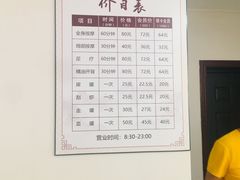 价目表
项目 时间 价格 会员价
全身按摩 60分钟 80元 72元 64元
局部按摩 30分钟 40元 36元 32元
足疗 60分钟 80元 72元 64元
精油开背 30分钟 80元 72元 64元
拔罐 一次 25元 22.5元 20元
刮痧 一次 25元 22.5元 20元
一次 30元 27元 24元
一次 50元 45元 40元
营业时间：8:30-23:00